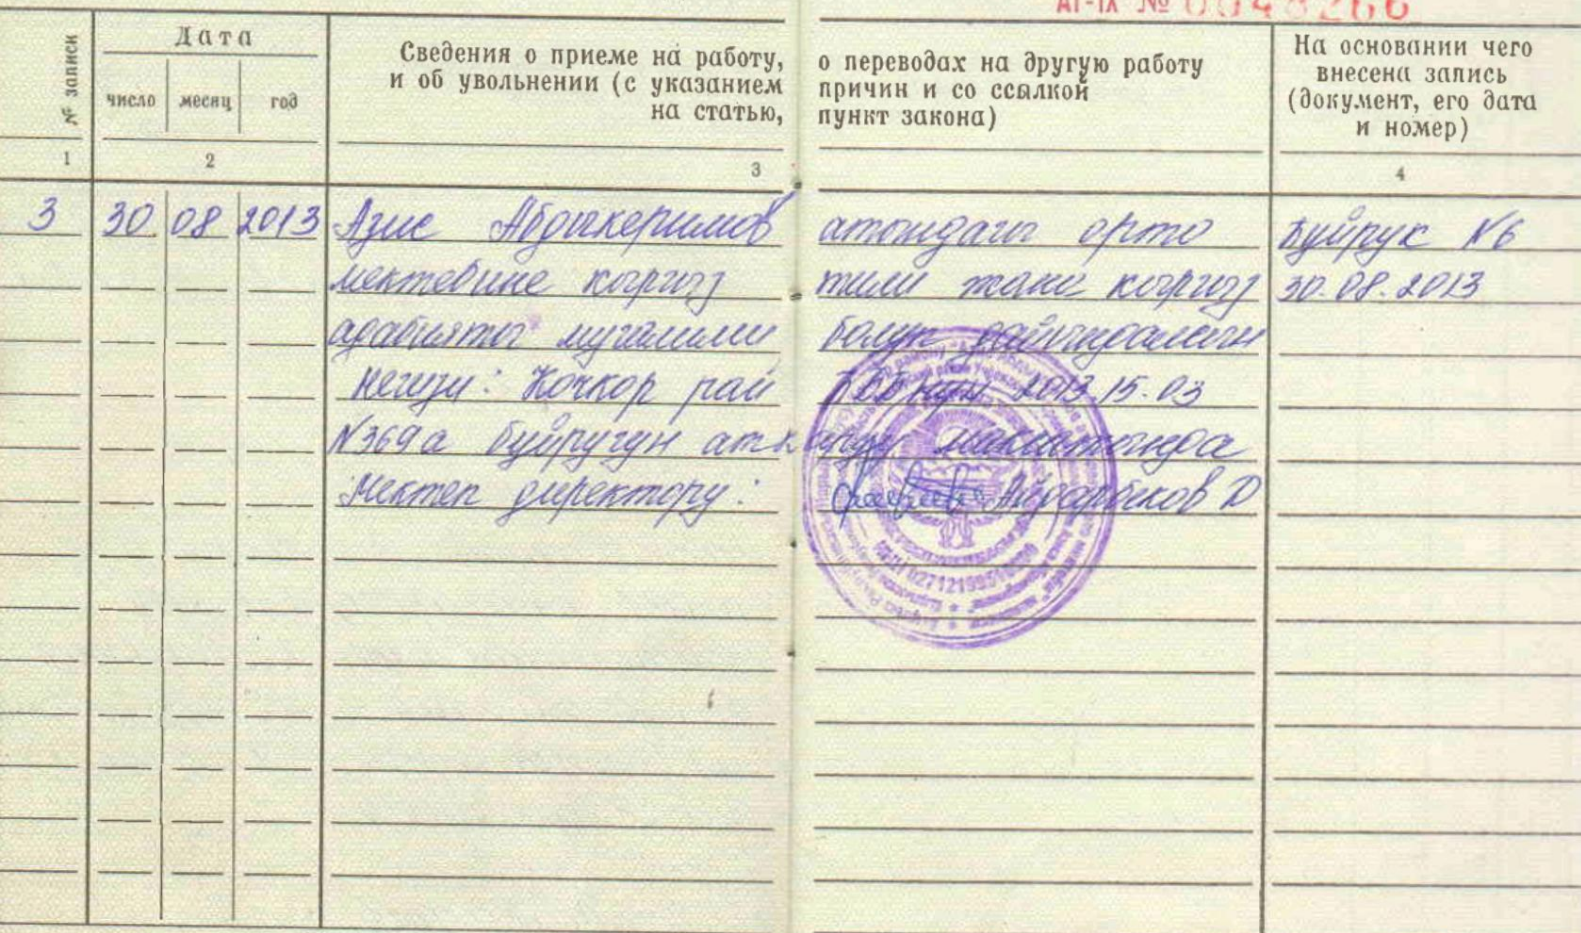 АТ-IX № 0048266
№ записи
Дата
число месяц год
Сведения о приеме на работу, о переводах на другую работу
и об увольнении (с указанием причин и со ссылкой
на статью, пункт закона)
На основании чего
внесена запись
(документ, его дата
и номер)
1 2 3 4
3 30 08 2013 Азис Абдыкеримов атындагы орто Буйрук №6
мектебине кыргыз тили жана кыргыз 30.08.2013
адабияты мугалими болуп дайындалсын
Негизи: Кочкор рай ББнун 2013.15.03
№369а буйругун аткаруу максатында
Мектеп директору: Айдарбеков Д